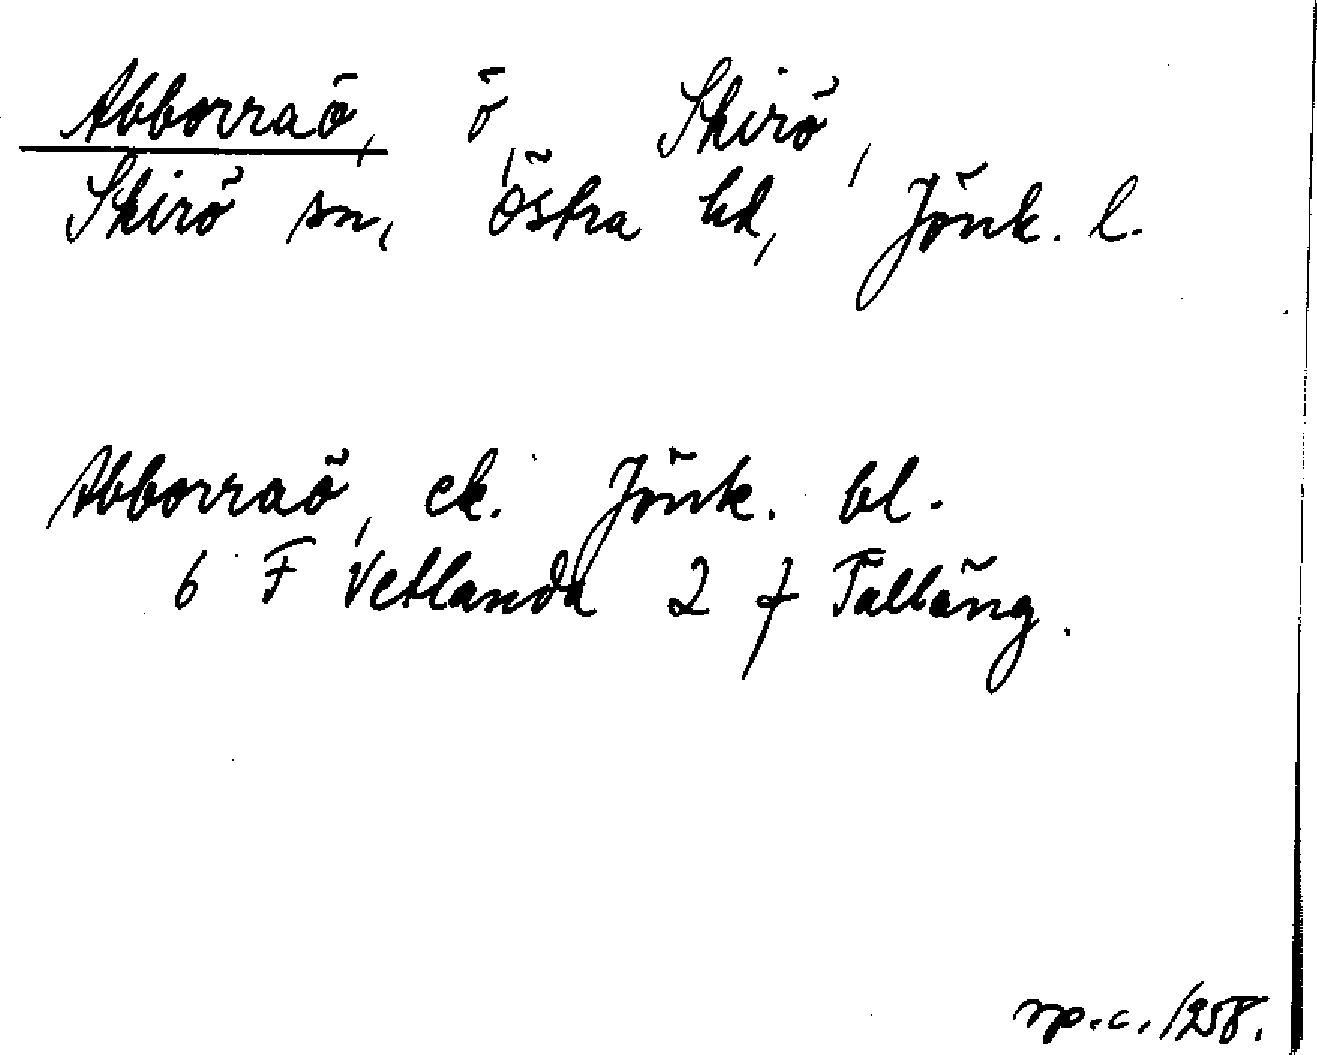 Abborraö, ö, Skirö,
Skirö sn, Östra hd, Jönk. l.
Abborraö, ek. Jönk. bl.
6 F Vetlanda 2 f Talläng.